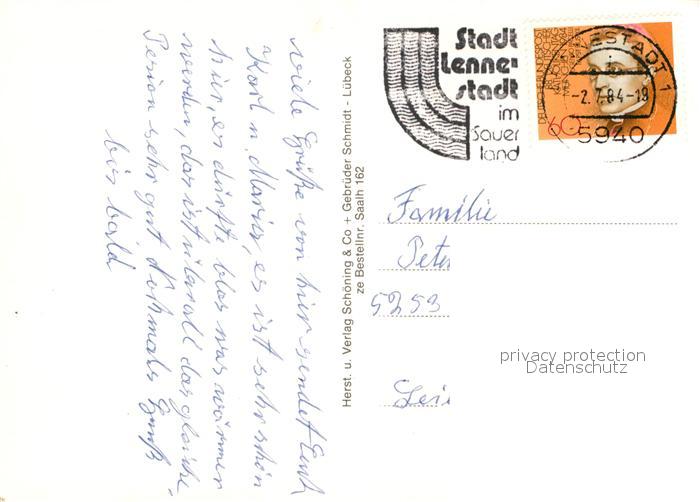 viele Grüße von hier sendet Euch
Karl u. Maria, es ist sehr schön
hier, es dürfte blos was wärmer
werden, das ist überall das gleiche.
Pension sehr gut Nochmals Gruß
bis bald
Herst. u. Verlag Schöning & Co + Gebrüder Schmidt - Lübeck
ze Bestellnr. Saalh 162
Stadt
Lenne-
stadt
im
Sauer
land
NESTADT 1
-2.7.84-19
5940
60
Familie
Peter
5253
privacy protection
Datenschutz